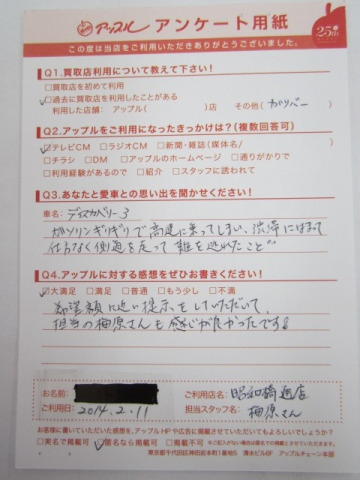 アップル アンケート用紙 25th
この度は当店をご利用いただきありがとうございました。
Q1.買取店利用について教えて下さい!
□買取店を初めて利用
☑過去に買取店を利用したことがある
利用した店舗: アップル( )店 その他( ガリバー )
Q2.アップルをご利用になったきっかけは?(複数回答可)
☑テレビCM □ラジオCM □新聞・雑誌(媒体名/ )
□チラシ □DM □アップルのホームページ □通りがかりで
□利用経験があるので □紹介 □スタッフに誘われて
Q3.あなたと愛車との思い出を聞かせください!
車名: ディスカバリー3
ガソリンギリギリで高速に乗ってしまい、渋滞にはまって
仕方なく側道を走って難を逃れたこと
Q4.アップルに対する感想をぜひお書きください!
☑大満足 □満足 □普通 □もう少し □不満
希望額に近い提示をしていただいて、
担当の柚原さんも感じが良かったです!
お名前:
ご利用日: 2014.2.11
ご利用店名: 昭和橋通店
担当スタッフ名: 柚原さん
お客様に書いていただいた感想を、アップルHPや広告に掲載させていただいてもよろしいでしょうか?
□実名で掲載可 ☑匿名なら掲載可 □掲載不可 ※ご記入がない場合は原名での掲載とさせていただきます。
東京都千代田区神田岩本町1番地5 清水ビル6F アップルチェーン本部